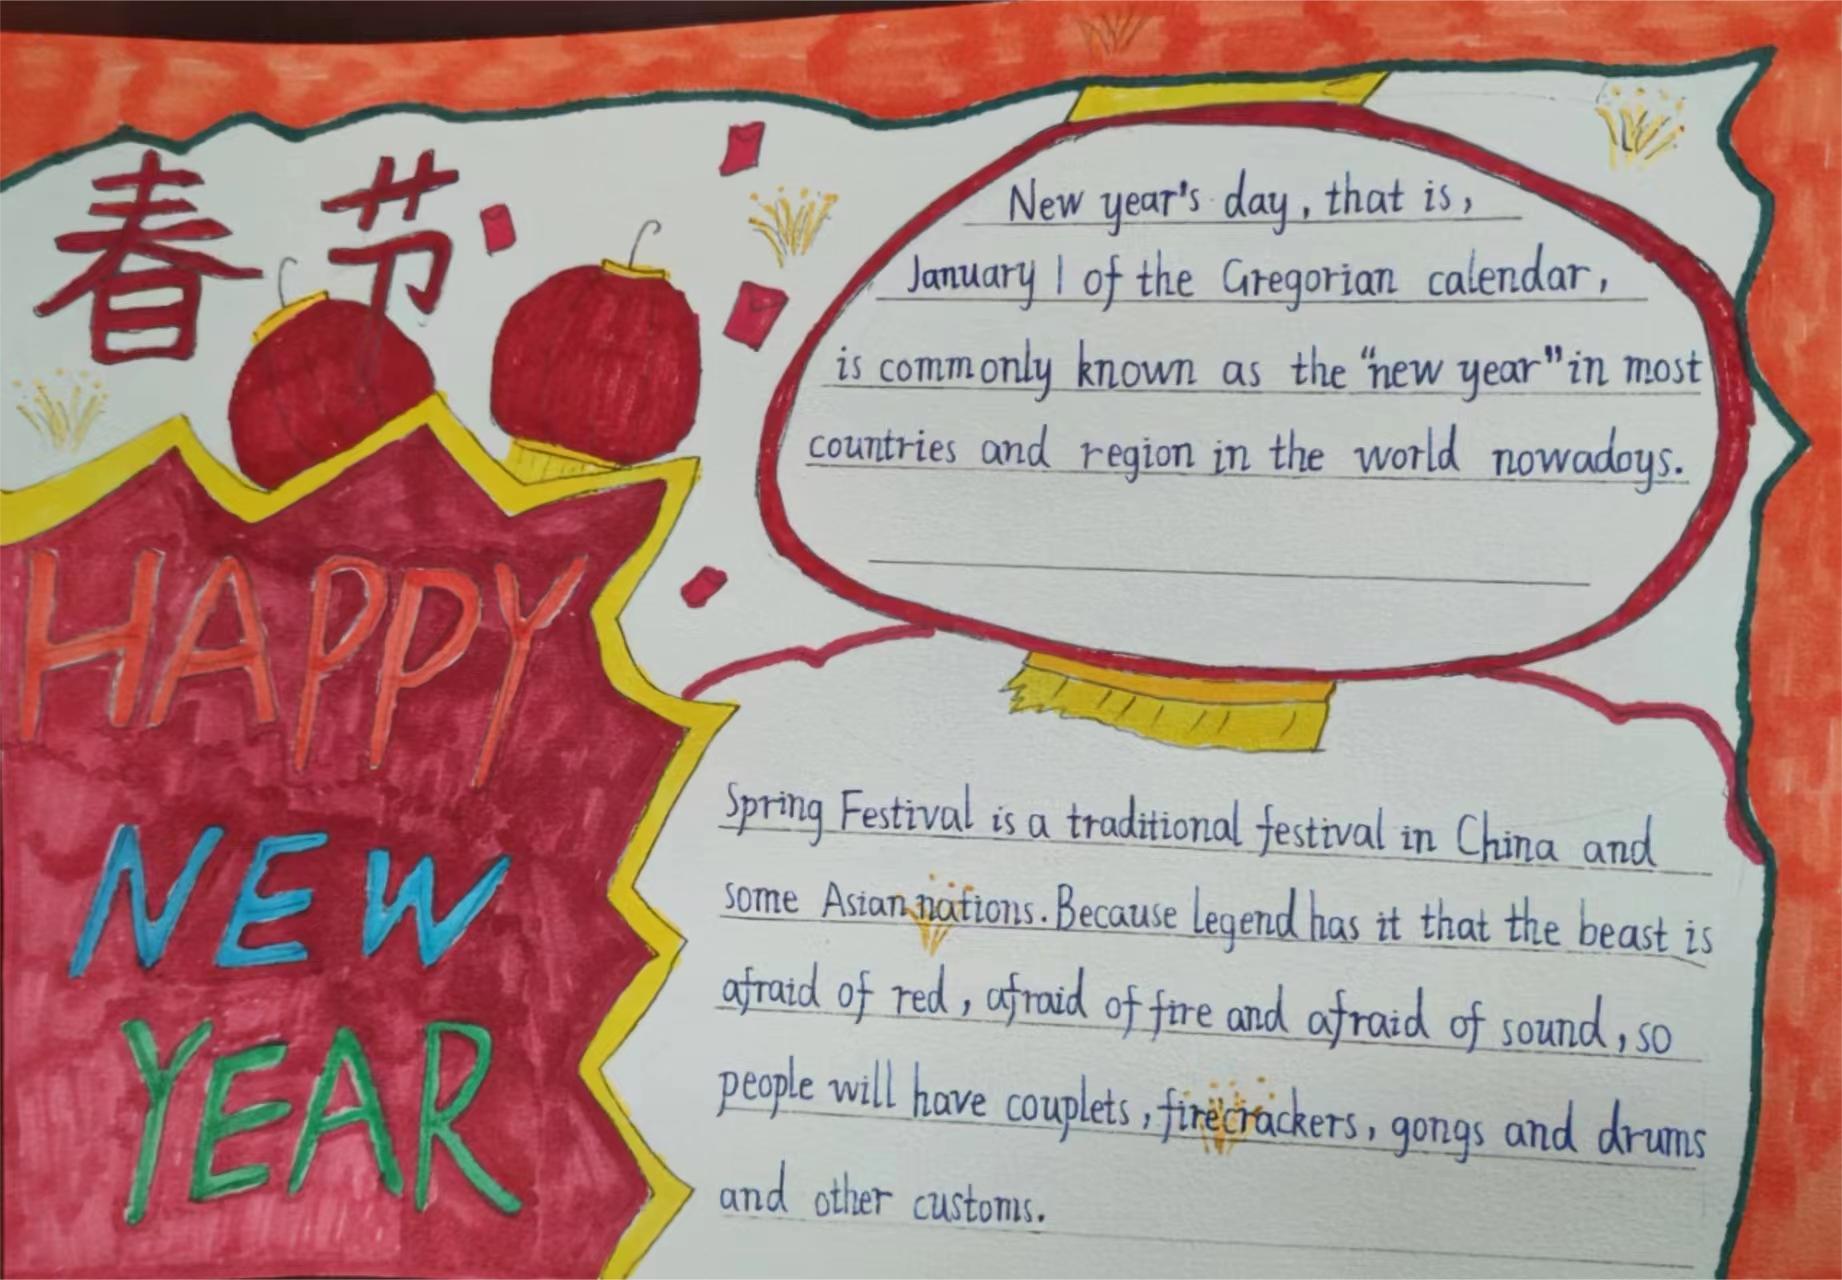 春节
New year's day, that is,
January 1 of the Gregorian calendar,
is commonly known as the "new year" in most
countries and region in the world nowadoys.
HAPPY
NEW
YEAR
Spring Festival is a traditional festival in China and
some Asian nations. Because legend has it that the beast is
afraid of red, afraid of fire and afraid of sound, so
people will have couplets, firecrackers, gongs and drums
and other customs.